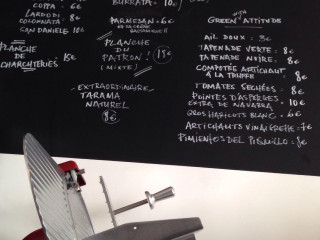 COPPA . 6€
LARDO DI
COLONNATA 8€
SAN DANIELE 18€
PLANCHE
DE 15€
CHARCUTERIES
BURRATA . 10€
PARMESAN . 6€
ET SA CRÈME
BALSAMIQUE !!
PLANCHE
DU
PATRON ! 18€
(MIXTE)
EXTRAORDINAIRE
TARAMA
NATUREL
8€
GREEN ATTITUDE
AIL DOUX . 3€
TAPENADE VERTE : 8€
TAPENADE NOIRE . 8€
COMPOTÉE ARTICHAUT
À LA TRUFFE 8€
TOMATES SÉCHÉES : 8€
POINTES D'ASPERGES .
EXTRA DE NAVARRA 10€
GROS HARICOTS BLANC . 6€
ARTICHAUTS VINAIGRETTE . 7€
PIMIENTOS DEL PIQUILLO : 8€